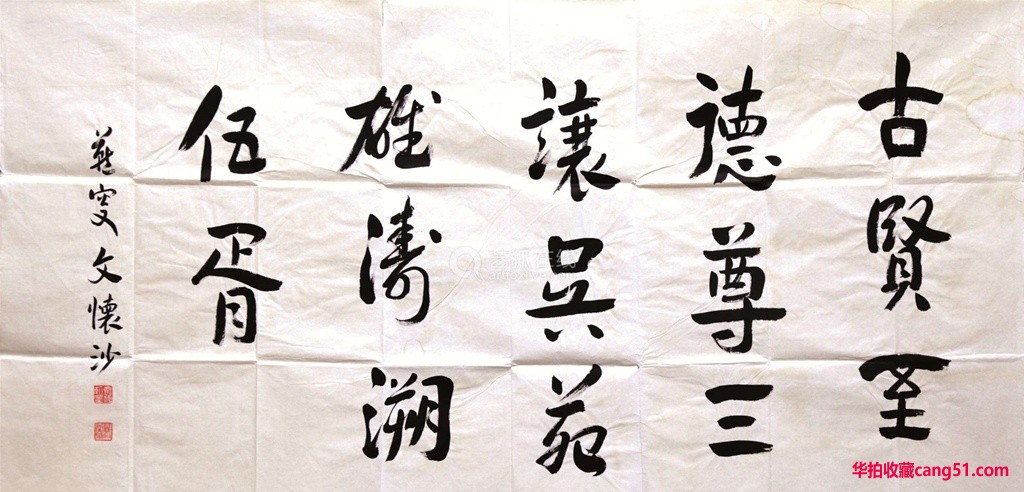 古賢至
德尊三
讓吳苑
雄濤溯
伍胥
燕叟文懷沙
华拍收藏cang51.com